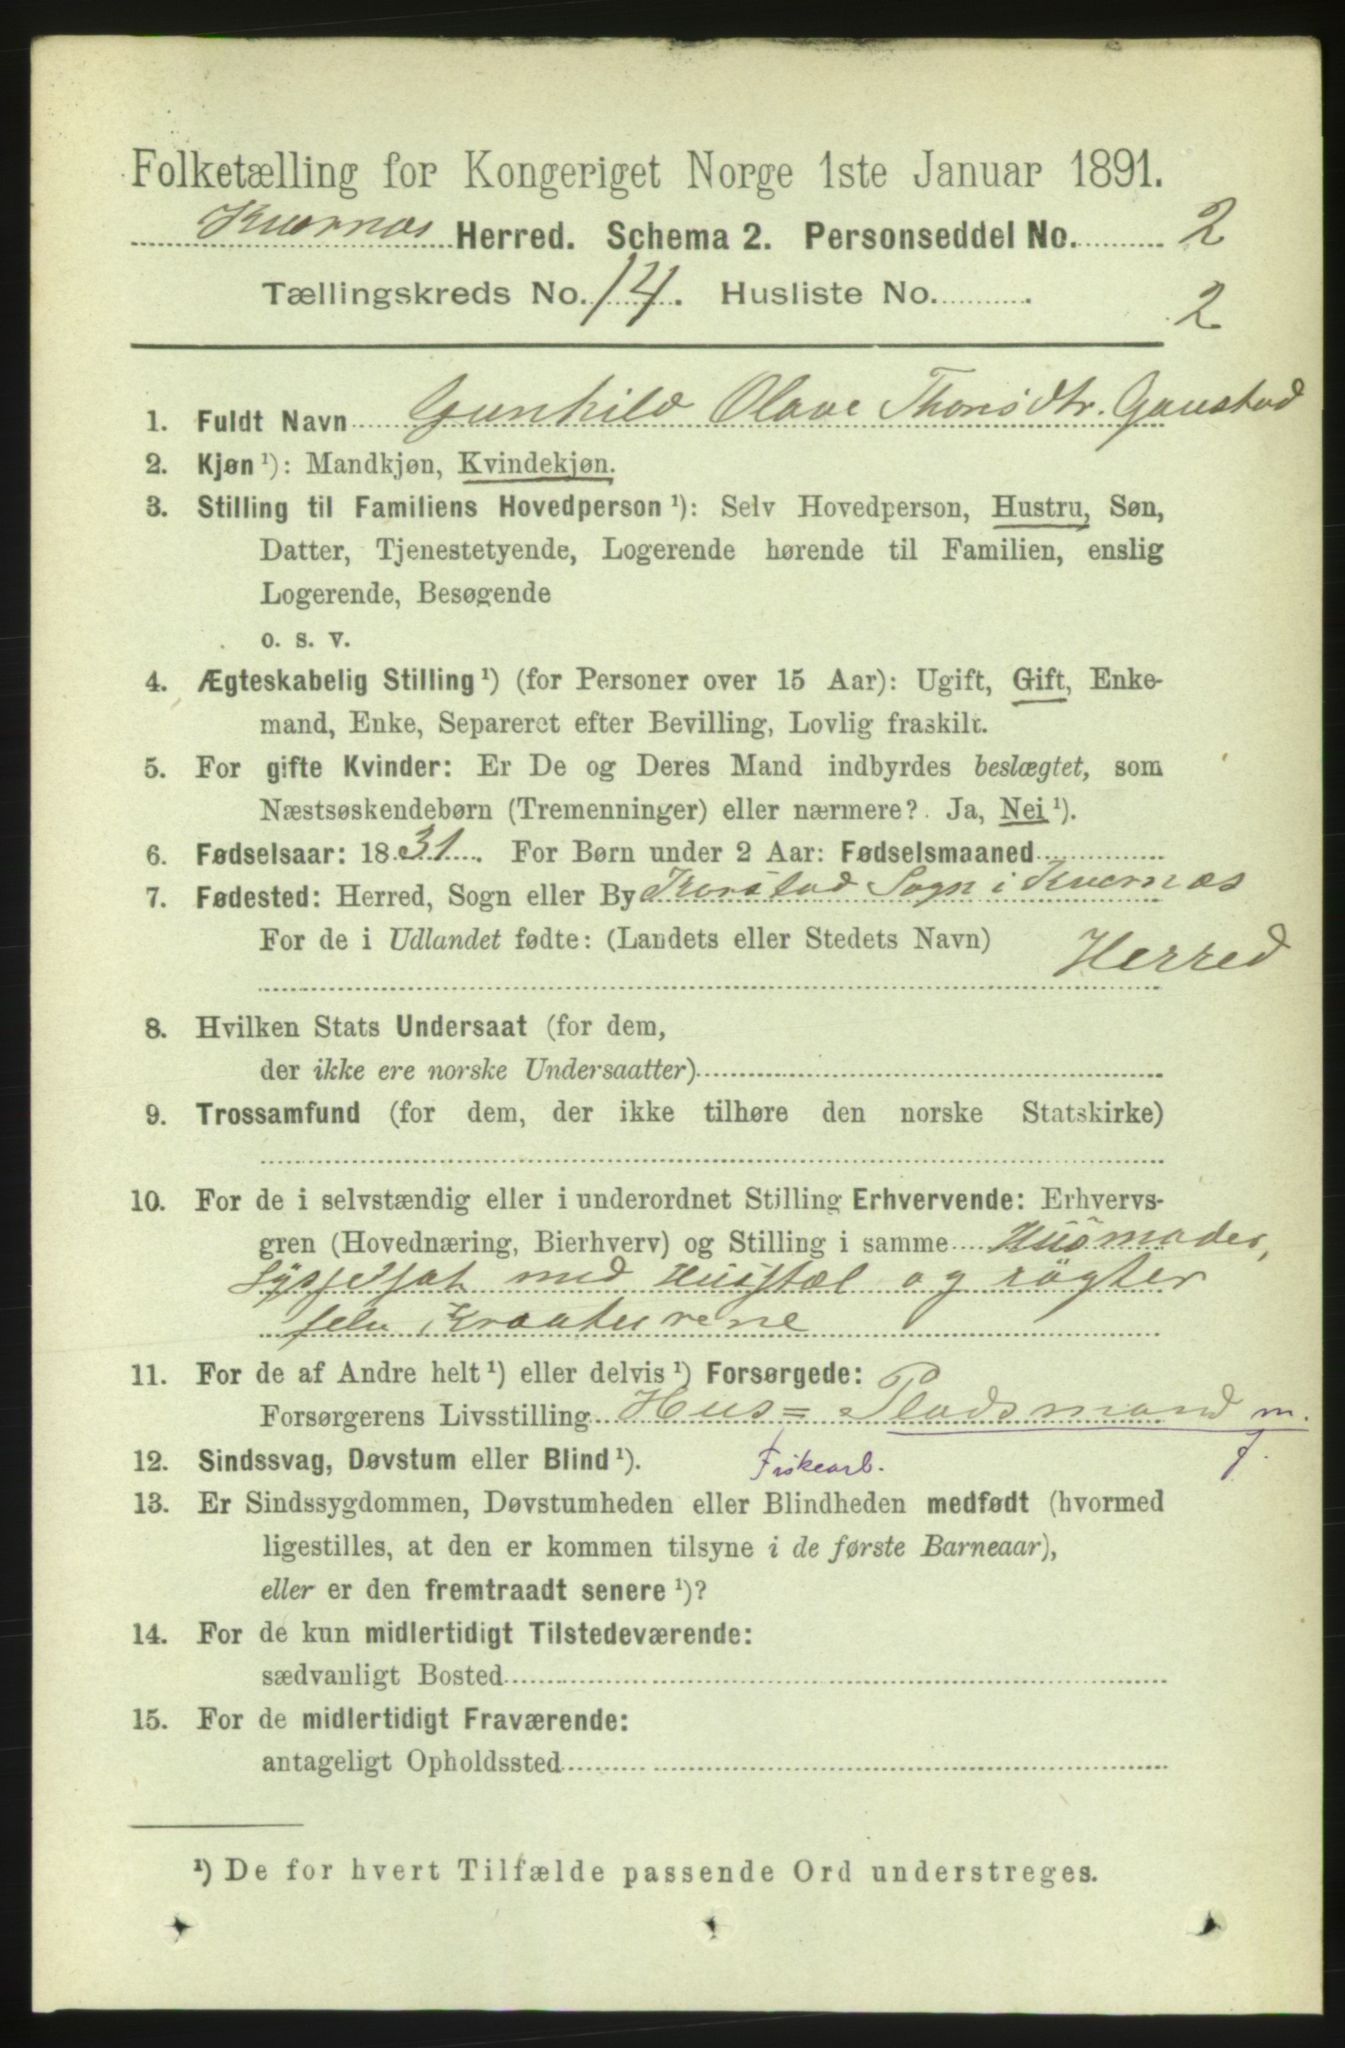 Folketælling for Kongeriget Norge 1ste Januar 1891.
Kvernæs Herred. Schema 2. Personseddel No. 2
Tællingskreds No. 14. Husliste No. 2
1. Fuldt Navn Gunhild Olave Thorisdtr. Gaustad
2. Kjøn ¹): Mandkjøn, Kvindekjøn.
3. Stilling til Familiens Hovedperson ¹): Selv Hovedperson, Hustru, Søn,
Datter, Tjenestetyende, Logerende hørende til Familien, enslig
Logerende, Besøgende
o. s. v.
4. Ægteskabelig Stilling ¹) (for Personer over 15 Aar): Ugift, Gift, Enke-
mand, Enke, Separeret efter Bevilling, Lovlig fraskilt.
5. For gifte Kvinder: Er De og Deres Mand indbyrdes beslægtet, som
Næstsøskendebørn (Tremenninger) eller nærmere? Ja, Nei ¹).
6. Fødselsaar: 1831. For Børn under 2 Aar: Fødselsmaaned
7. Fødested: Herred, Sogn eller By Korstad Sogn i Kvernæs
For de i Udlandet fødte: (Landets eller Stedets Navn) Herred
8. Hvilken Stats Undersaat (for dem,
der ikke ere norske Undersaatter)
9. Trossamfund (for dem, der ikke tilhøre den norske Statskirke)
10. For de i selvstændig eller i underordnet Stilling Erhvervende: Erhvervs-
gren (Hovednæring, Bierhverv) og Stilling i samme Husmoder,
sysselsat med Husstæl og røgter
selv Kreaturene
11. For de af Andre helt ¹) eller delvis ¹) Forsørgede:
Forsørgerens Livsstilling Hus= Pladsmand m.
j.
12. Sindssvag, Døvstum eller Blind ¹). Fiskearb.
13. Er Sindssygdommen, Døvstumheden eller Blindheden medfødt (hvormed
ligestilles, at den er kommen tilsyne i de første Barneaar),
eller er den fremtraadt senere ¹)?
14. For de kun midlertidigt Tilstedeværende:
sædvanligt Bosted
15. For de midlertidigt Fraværende:
antageligt Opholdssted
¹) De for hvert Tilfælde passende Ord understreges.